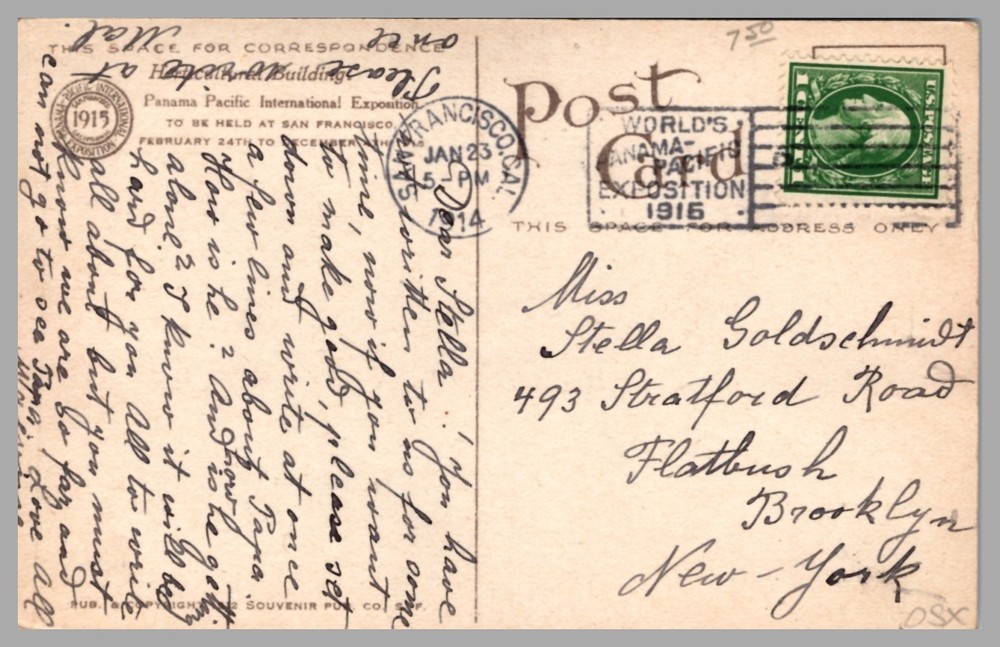 7 50
THIS SPACE FOR CORRESPONDENCE
Horticultural Building
Panama Pacific International Exposition
TO BE HELD AT SAN FRANCISCO,
FEBRUARY 24TH TO DECEMBER 4TH 1915
PANAMA-PACIFIC INTERNATIONAL EXPOSITION
SAN FRANCISCO
1915
CALIFORNIA
Post Card
SAN FRANCISCO, CAL.
JAN 23
5 - PM
1914
WORLD'S
PANAMA-
PACIFIC
EXPOSITION
1915
U.S. POSTAGE
1 CENT 1
THIS SPACE FOR ADDRESS ONLY
Dear Stella! You have
not written to us for some
time, now if you want
to make good, please set
down and write at once
a few lines about Papa
How is he? And is he getting
alone? I know it will be
hard for you All to write
all about but you must
know we are so far and
can not go to see Papa. Love all
Please write at
once
Mal.
Miss
Stella Goldschmidt
493 Stratford Road
Flatbush
Brooklyn
New-York
PUB. & COPYRIGHT 1912 SOUVENIR PUB. CO. S.F.
OSX